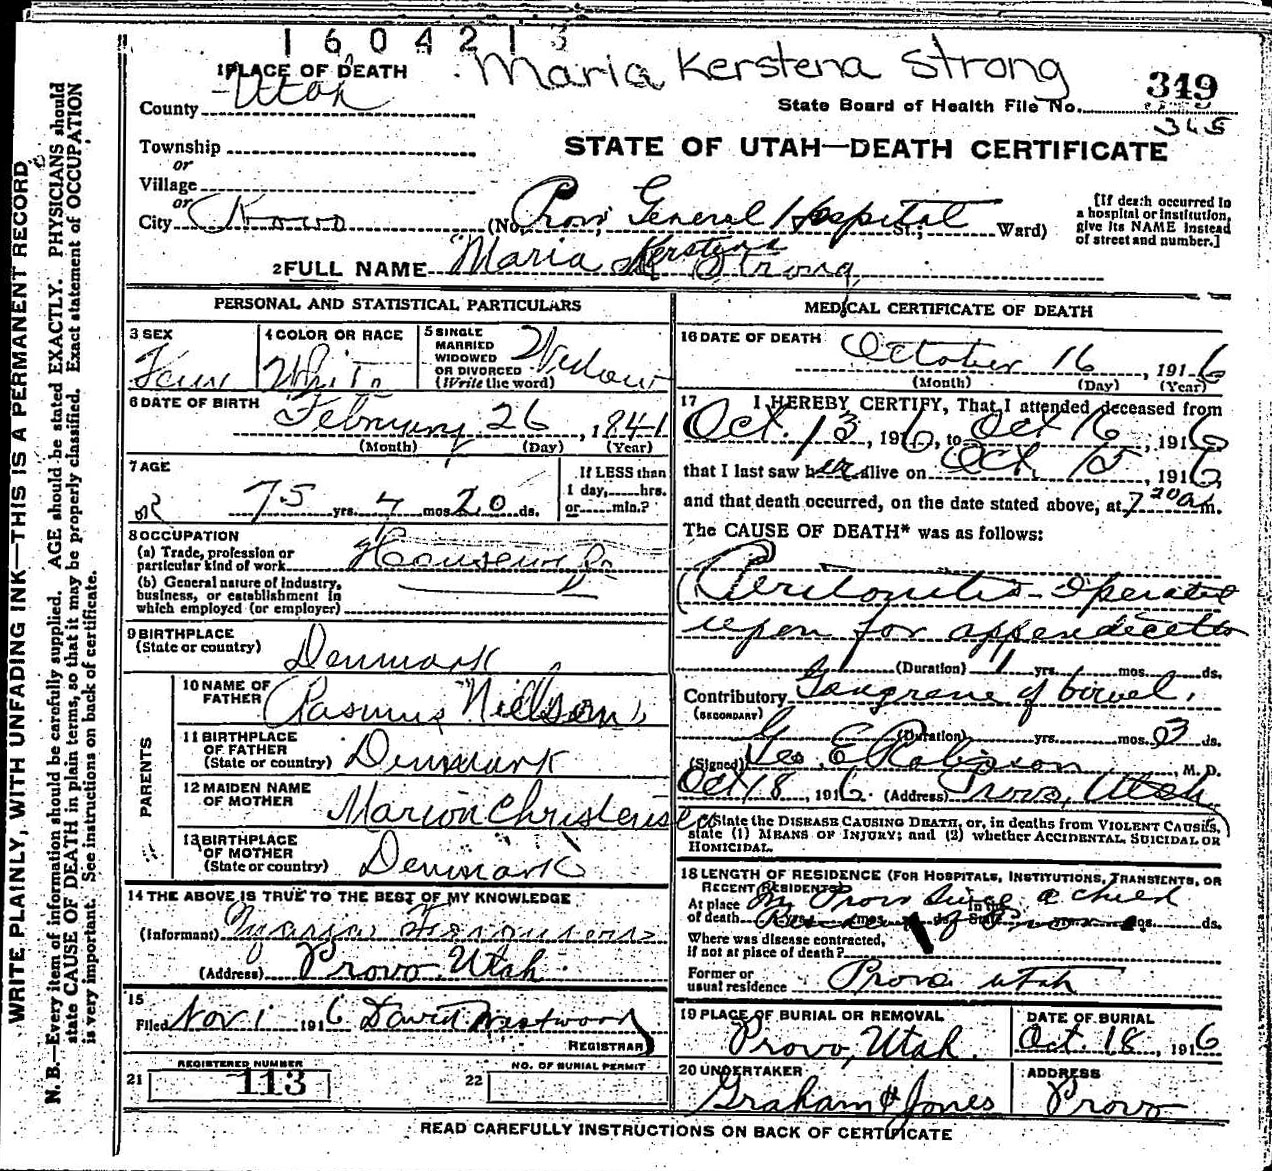 1604213
Maria Kerstena Strong
1 PLACE OF DEATH
349
County Utah
State Board of Health File No.
345
Township
STATE OF UTAH—DEATH CERTIFICATE
or
Village
or
City Provo (No. Provo General Hospital St.; Ward)
[If death occurred in
a hospital or institution,
give its NAME instead
of street and number.]
2 FULL NAME Maria Kerstena Strong
PERSONAL AND STATISTICAL PARTICULARS
3 SEX
Fem
4 COLOR OR RACE
White
5 SINGLE
MARRIED
WIDOWED
OR DIVORCED
(Write the word)
Widow
6 DATE OF BIRTH
February 26, 1841
(Month) (Day) (Year)
7 AGE
75 yrs. 7 mos. 20 ds.
If LESS than
1 day, hrs.
or min.?
8 OCCUPATION
(a) Trade, profession or
particular kind of work
(b) General nature of industry,
business, or establishment in
which employed (or employer)
9 BIRTHPLACE
(State or country) Denmark
PARENTS
10 NAME OF
FATHER Rasmus Nielson
11 BIRTHPLACE
OF FATHER
(State or country) Denmark
12 MAIDEN NAME
OF MOTHER Marion Christensen
13 BIRTHPLACE
OF MOTHER
(State or country) Denmark
14 THE ABOVE IS TRUE TO THE BEST OF MY KNOWLEDGE
(Informant)
(Address) Provo Utah
15
Filed Nov 1 1916 David Westwood
REGISTRAR
REGISTERED NUMBER
21 113
NO. OF BURIAL PERMIT
22
MEDICAL CERTIFICATE OF DEATH
16 DATE OF DEATH
October 16, 1916
(Month) (Day) (Year)
17 I HEREBY CERTIFY, That I attended deceased from
Oct. 13, 1916, to Oct 16, 1916
that I last saw her alive on Oct. 15, 1916,
and that death occurred, on the date stated above, at 7 20 a m.
The CAUSE OF DEATH* was as follows:
Peritonitis - Operated
upon for appendicitis
(Duration) yrs. mos. ds.
Contributory Gangrene of bowel.
(SECONDARY)
(Duration) yrs. mos. 3 ds.
(Signed) Geo E Robinson, M. D.
Oct 18, 1916. (Address) Provo, Utah
*State the DISEASE CAUSING DEATH, or, in deaths from VIOLENT CAUSES,
state (1) MEANS OF INJURY; and (2) whether ACCIDENTAL, SUICIDAL OR
HOMICIDAL.
18 LENGTH OF RESIDENCE (FOR HOSPITALS, INSTITUTIONS, TRANSIENTS, OR
RECENT RESIDENTS)
At place In Provo Since a child
of death yrs. mos. ds. State yrs. mos. ds.
Where was disease contracted,
if not at place of death?
Former or
usual residence Provo Utah
19 PLACE OF BURIAL OR REMOVAL
Provo, Utah.
DATE OF BURIAL
Oct. 18, 1916
20 UNDERTAKER
Graham & Jones
ADDRESS
Provo
READ CAREFULLY INSTRUCTIONS ON BACK OF CERTIFICATE
WRITE PLAINLY, WITH UNFADING INK—THIS IS A PERMANENT RECORD
N. B.—Every item of information should be carefully supplied. AGE should be stated EXACTLY. PHYSICIANS should
state CAUSE OF DEATH in plain terms, so that it may be properly classified. Exact statement of OCCUPATION
is very important. See instructions on back of certificate.